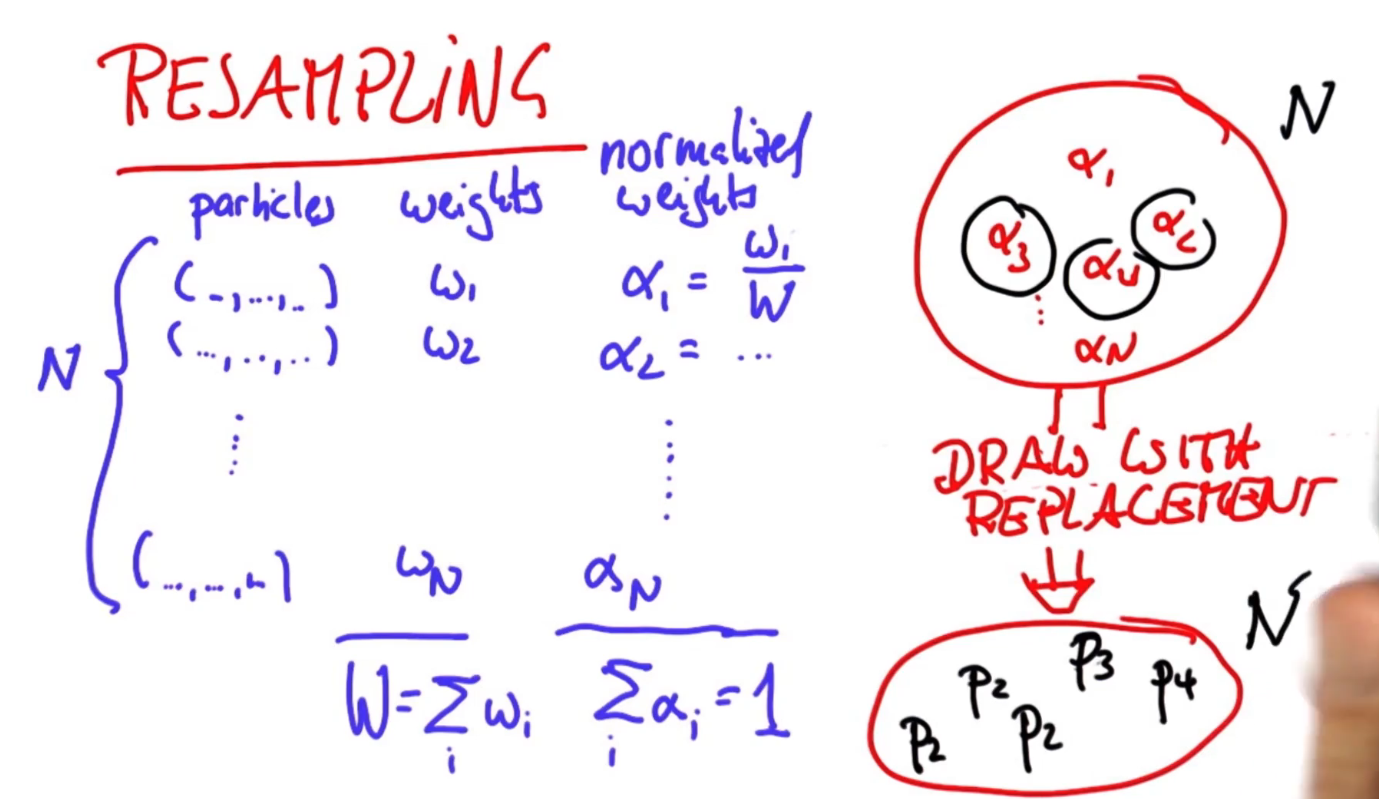 RESAMPLING
particles weights normalized weights
N
(..,...,..) ω₁ α₁ = ω₁/W
(...,...,..) ω₂ α₂ = ...
⋮ ⋮
(...,...,..) ωN αN
W = Σᵢ ωᵢ Σᵢ αᵢ = 1
N
α₁
α₃ α₄ α₂
⋮
αN
DRAW WITH
REPLACEMENT
N
p₃
p₂ p₄
p₂ p₂